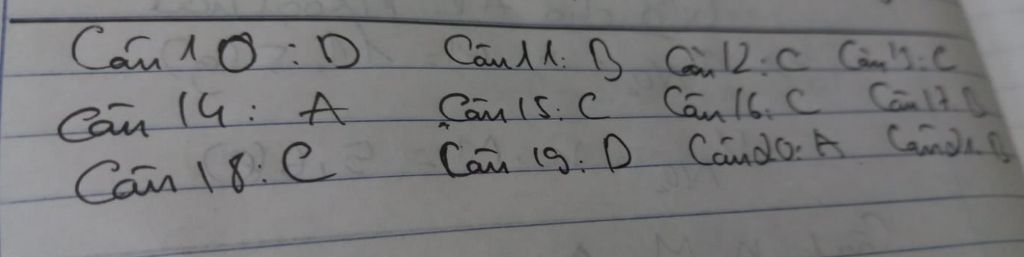 Câu 10 : D Câu 11: B Câu 12 : C Câu 13 : C
Câu 14 : A Câu 15 : C Câu 16 : C Câu 17 B
Câu 18 : C Câu 19 : D Câu 20: A Câu 21. B